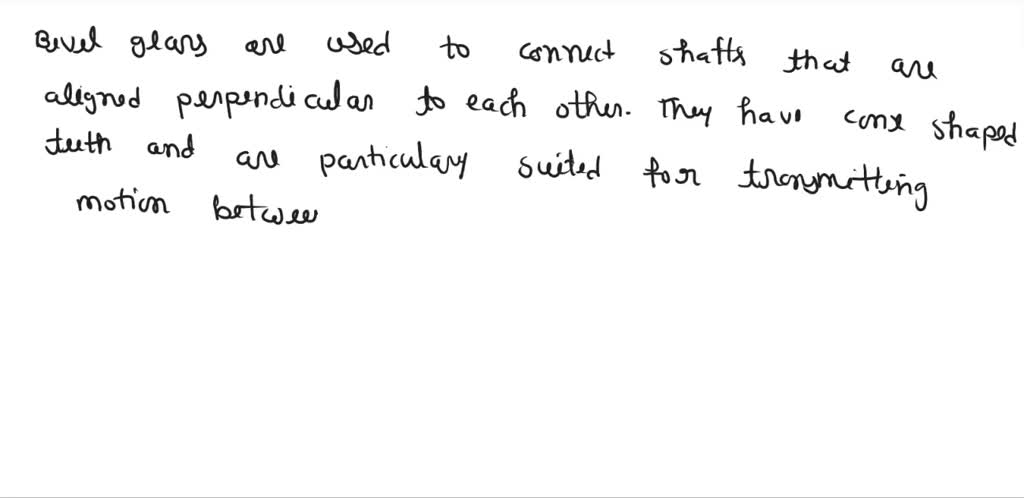 Bevel gears are used to connect shafts that are
aligned perpendicular to each other. They have cone shaped
teeth and are particulary suited for transmitting
motion between